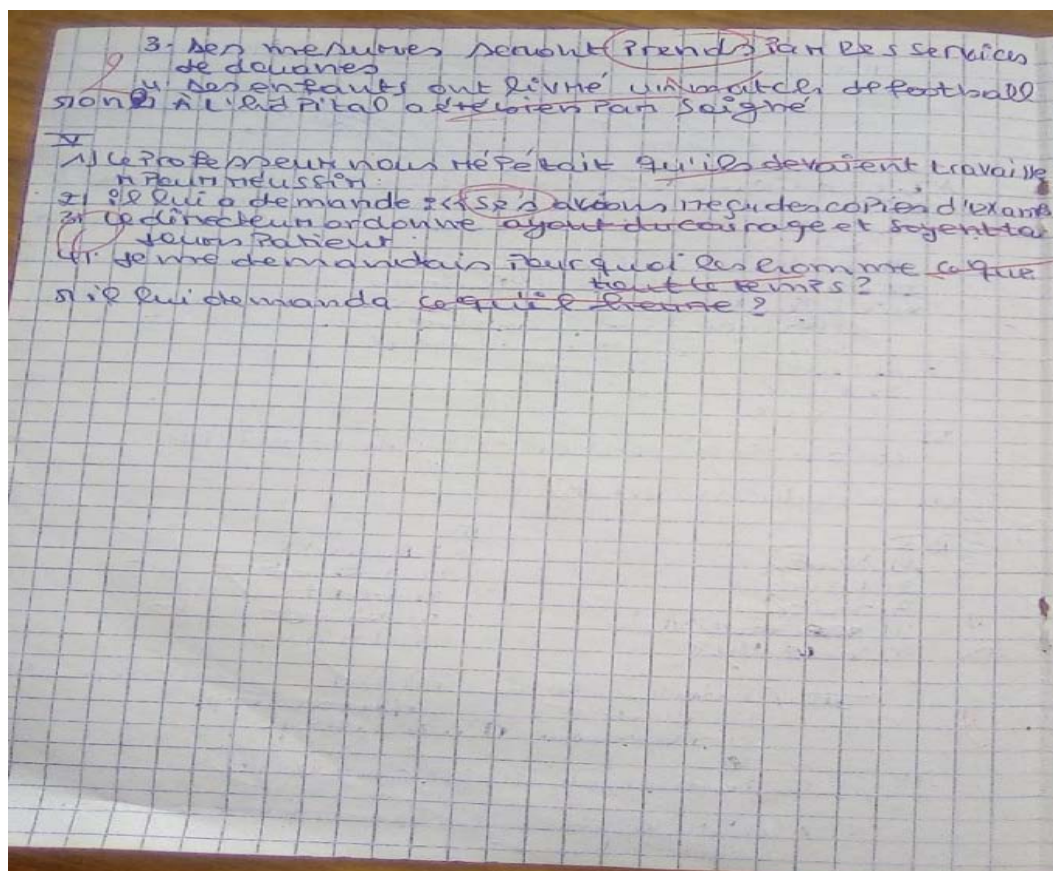 3. Des mesures seront prends par les services
de douanes
2
4. Des enfants ont livré un match de football
5) on à l'hôpital a été bien par soigné
V
1) le professeur nous répétait qu'ils devaient travaille
r pour réussir.
2) il lui a demande : si avions reçu des copies d'exam
3) le directeur ordonne ayent du courage et soyent
soyons patient.
4). je me demandais pourquoi les homme ce que
tout le temps ?
5) il lui demanda ce qu'il vienne ?